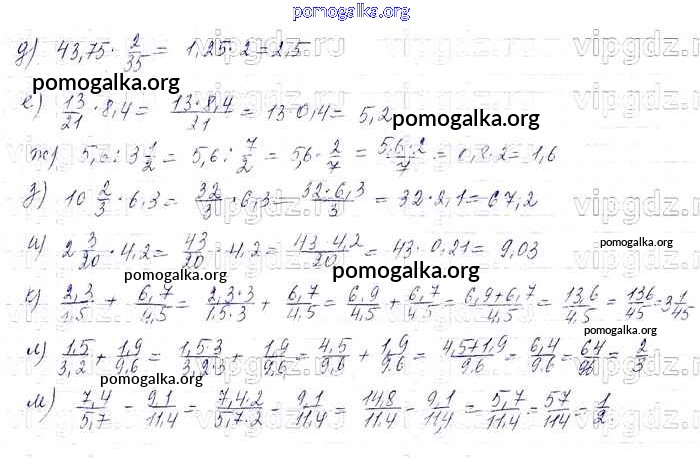 pomogalka.org
д) 43,75 · 2/35 = 1,25 · 2 = 2,5
vipgdz.ru vipgdz.ru vipgdz.ru
pomogalka.org
е) 13/21 · 8,4 = 13·8,4/21 = 13·0,4 = 5,2
pomogalka.org
ж) 5,6 : 3 1/2 = 5,6 : 7/2 = 5,6 · 2/7 = 5,6·2/7 = 0,8·2 = 1,6
з) 10 2/3 · 6,3 = 32/3 · 6,3 = 32·6,3/3 = 32·2,1 = 67,2
и) 2 3/20 · 4,2 = 43/20 · 4,2 = 43·4,2/20 = 43·0,21 = 9,03
pomogalka.org
pomogalka.org pomogalka.org
к) 2,3/1,5 + 6,7/4,5 = 2,3·3/1,5·3 + 6,7/4,5 = 6,9/4,5 + 6,7/4,5 = 6,9+6,7/4,5 = 13,6/4,5 = 136/45 = 3 1/45
pomogalka.org
л) 1,5/3,2 + 1,9/9,6 = 1,5·3/3,2·3 + 1,9/9,6 = 4,5/9,6 + 1,9/9,6 = 4,5+1,9/9,6 = 6,4/9,6 = 64/96 = 2/3
pomogalka.org pomogalka.org
м) 7,4/5,7 - 9,1/11,4 = 7,4·2/5,7·2 - 9,1/11,4 = 14,8/11,4 - 9,1/11,4 = 5,7/11,4 = 57/114 = 1/2